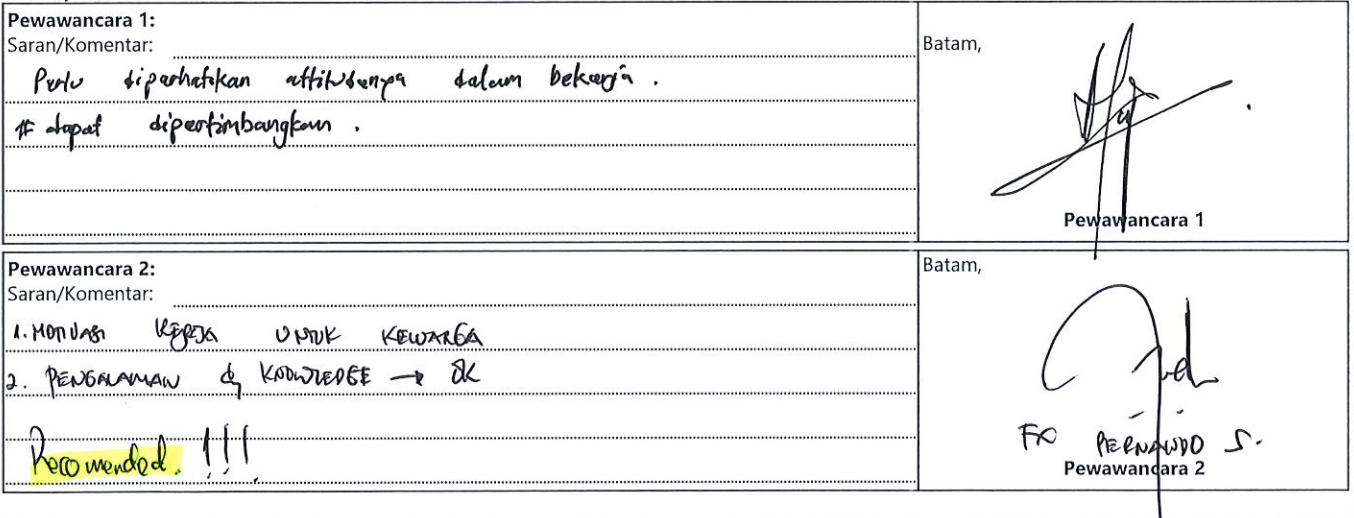 Pewawancara 1:
Saran/Komentar:
Perlu diperhatikan attitudenya dalam bekerja.
# dapat dipertimbangkan.
Batam,
Pewawancara 1
Pewawancara 2:
Saran/Komentar:
1. MOTIVASI KERJA UNTUK KELUARGA
2. PENGALAMAN & KNOWLEDGE → OK
Recomended. !!!
Batam,
FX PERNANDO S.
Pewawancara 2